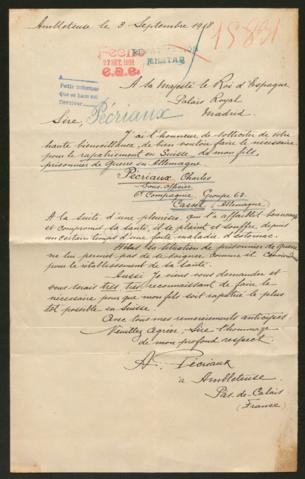 Ambleteuse le 3 Septembre 1918
15831
Fecha
27 SET. 1918
MILITAR
A
Petit intérieur
Que se hace en
Pécriaux
A Sa Majesté le Roi d'Espagne
Palais Royal
Madrid.
Sire,
J'ai l'honneur de solliciter de votre
haute bienveillance, de bien vouloir faire le nécessaire
pour le rapatriement en Suisse, de mon fils,
prisonnier de Guerre en Allemagne
Pécriaux Charles
Sous-Officier
6e Compagnie Groupe 62
Cassel (Allemagne)
A la suite d'une pleurésie, qui l'a affaibli beaucoup
et compromis la santé, il se plaint et souffre depuis
un certain temps d'une forte maladie d'estomac.
Sa situation de prisonnier de Guerre
ne lui permet pas de se soigner, comme il conviendrait
pour le rétablissement de sa santé.
Aussi Je viens vous demander et
vous serais très, très reconnaissant de faire le
nécessaire pour que mon fils soit rapatrié le plus
tôt possible en Suisse.
Avec tous mes remerciements anticipés
Veuillez agréer, Sire l'hommage
de mon profond respect.
A. Pécriaux
à Ambleteuse
Pas-de-Calais
(France)